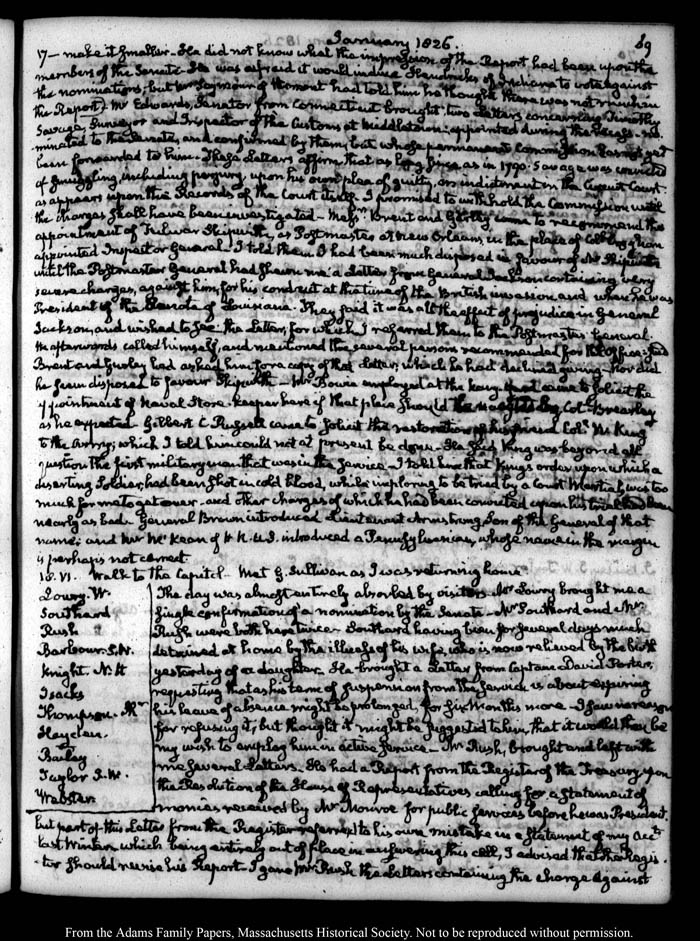 January 1826.
89
17 — make it smaller. He did not know what the impression of the Report had been upon the
members of the Senate. He was afraid it would induce Hendricks of Indiana to vote against
the nominations; but Mr Seymour of Vermont had told him he thought there was not much in
the Report. Mr Edwards, Senator from Connecticut brought two Letters concerning Timothy
Savage, Surveyor and Inspector of the Customs at Middletown; appointed during the recess, no-
minated to the Senate, and confirmed by them; but whose permanent Commission has not yet
been forwarded to him. These Letters affirm, that as long since as in 1790. Savage was convicted
of smuggling, including perjury upon his own plea of guilty, on indictment in the Circuit Court
as appears upon the Records of the Court itself. I promised to withhold the Commission until
the charges shall have been investigated — Messrs Brent and Gurley came to recommend the
appointment of Fulwar Skipwith, as Postmaster at New Orleans, in the place of Croghan
appointed Inspector General. I told them I had been much disposed in favour of Mr Skipwith
until the Postmaster General had shewn me a Letter from General Jackson containing very
severe charges, against him, for his conduct at the time of the British invasion, and when he was
President of the Senate of Louisiana. They said it was all the effect of prejudice in General
Jackson, and wished to see the Letter, for which I referred them to the Postmaster General.
He afterwards called himself, and mentioned the several persons recommended for the Office; said
Brent and Gurley had asked him for a copy of that Letter, which he had declined giving. Nor did
he seem disposed to favour Skipwith — Mr Bowie employed at the Navy Yard came to solicit the
appointment of Naval Store-keeper here if that place should be vacated by Coll Brearley
as he expected. Gilbert C. Russell came to solicit the restoration of his friend Coll W. King
to the Army; which I told him could not at present be done. He said King was beyond all
question the first military man that was in the service. I told him that King's order upon which a
deserting soldier had been shot in cold blood, while imploring to be tried by a Court Martial, was too
much for me to get over. and other charges of which he had been convicted upon his trial had been
nearly as bad. General Brown introduced Lieutenant Armstrong Son of the General of that
name; and Mr McKean of H. R. U.S. introduced a Pennsylvanian, whose name in the margin
is perhaps not correct.
18. VI. Walk to the Capitol. Met G. Sullivan as I was returning home.
Lowry. W.
Southard
Rush
Barbour. S.W.
Knight. N. H
Isacks
Thompson. Mr
Hayden.
Bailey
Taylor S. W.
Webster.
The day was almost entirely absorbed by visitors. Mr Lowry brought me a
single confirmation of a nomination by the Senate — Mr Southard and Mr
Rush were both here twice. Southard having been for several days much
detained at home by the illness of his wife, who is now relieved by the birth
yesterday of a daughter. He brought a Letter from Captain David Porter,
requesting that as his term of suspension from the service is about expiring
his leave of absence might be prolonged, for six Months more — I saw no reason
for refusing it, but thought it might be suggested to him, that it would then be
my wish to employ him in active service — Mr Rush, brought and left with
me several Letters. He had a Report from the Register of the Treasury, upon
the Resolution of the House of Representatives calling for a Statement of
monies received by Mr Monroe for public services before he was President.
but part of this Letter from the Register referred to his own mistake in a Statement of my Acct
last Winter, which being entirely out of place in answering this call, I advised that the Regis-
ter should revise his Report. I gave Mr Rush the Letters containing the charge against
From the Adams Family Papers, Massachusetts Historical Society. Not to be reproduced without permission.